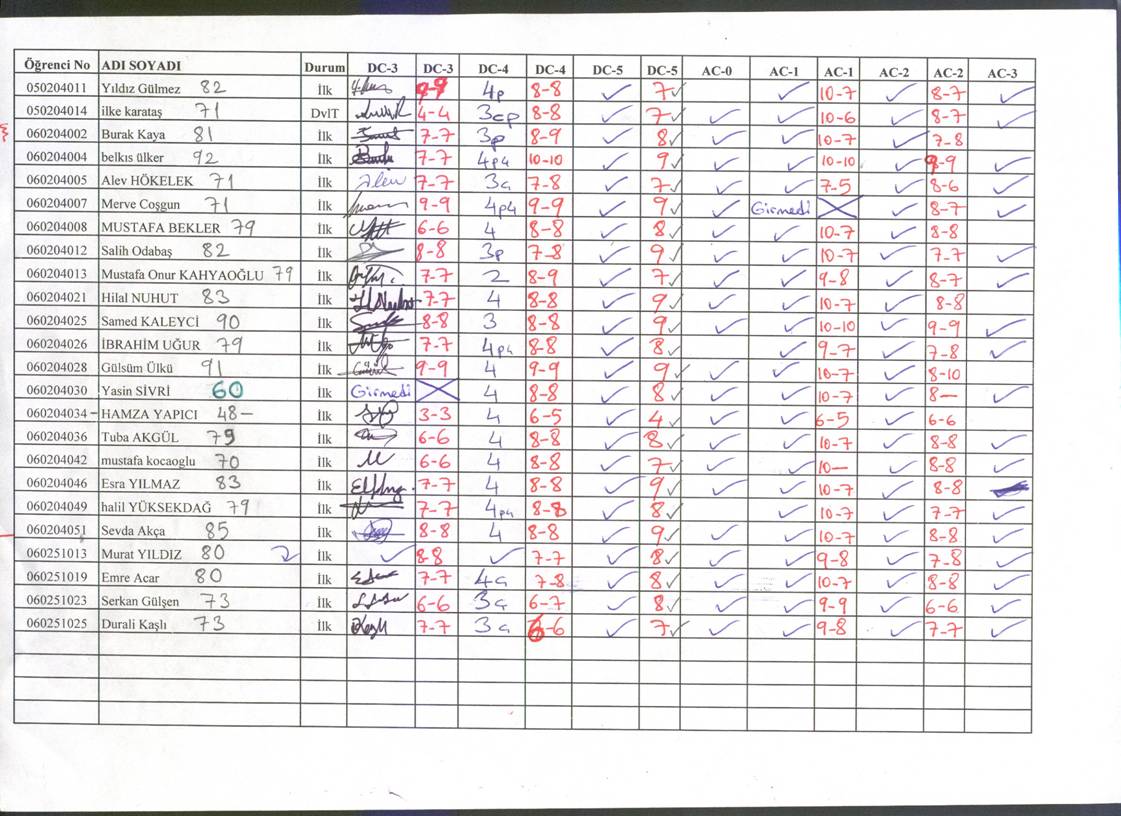 Öğrenci No ADI SOYADI Durum DC-3 DC-3 DC-4 DC-4 DC-5 DC-5 AC-0 AC-1 AC-1 AC-2 AC-2 AC-3
050204011 Yıldız Gülmez 82 İlk 4p 8-8 ✓ 7✓ ✓ 10-7 ✓ 8-7 ✓
050204014 ilke karataş 71 DvlT 4-4 3cp 8-8 ✓ 7✓ ✓ ✓ 10-6 ✓ 8-7 ✓
060204002 Burak Kaya 81 İlk 7-7 3p 8-9 ✓ 8✓ ✓ ✓ 10-7 ✓ 7-8
060204004 belkıs ülker 92 İlk 7-7 4p4 10-10 ✓ 9✓ ✓ ✓ 10-10 ✓ 9-9 ✓
060204005 Alev HÖKELEK 71 İlk Alev 7-7 3a 7-8 ✓ 7✓ ✓ ✓ 7-5 ✓ 8-6 ✓
060204007 Merve Coşgun 71 İlk 9-9 4p4 9-9 ✓ 9✓ ✓ Girmedi X ✓ 8-7 ✓
060204008 MUSTAFA BEKLER 79 İlk 6-6 4 8-8 ✓ 8✓ ✓ ✓ 10-7 ✓ 8-8
060204012 Salih Odabaş 82 İlk 8-8 3p 7-8 ✓ 9✓ ✓ ✓ 10-7 ✓ 7-7 ✓
060204013 Mustafa Onur KAHYAOĞLU 79 İlk 7-7 2 8-9 ✓ 7✓ ✓ ✓ 9-8 ✓ 8-7 ✓
060204021 Hilal NUHUT 83 İlk 7-7 4 8-8 ✓ 9✓ ✓ ✓ 10-7 ✓ 8-8
060204025 Samed KALEYCİ 90 İlk 8-8 3 8-8 ✓ 9✓ ✓ ✓ 10-10 ✓ 9-9 ✓
060204026 İBRAHİM UĞUR 79 İlk 7-7 4p4 8-8 ✓ 8✓ ✓ 9-7 ✓ 7-8 ✓
060204028 Gülsüm Ülkü 91 İlk 9-9 4 9-9 ✓ 9✓ ✓ ✓ 10-7 ✓ 8-10
060204030 Yasin SİVRİ 60 İlk Girmedi X 4 8-8 ✓ 8✓ ✓ ✓ 10-7 ✓ 8- ✓
060204034 - HAMZA YAPICI 48 - İlk 3-3 4 6-5 ✓ 4✓ ✓ ✓ 6-5 ✓ 6-6
060204036 Tuba AKGÜL 79 İlk 6-6 4 8-8 ✓ 8✓ ✓ ✓ 10-7 ✓ 8-8 ✓
060204042 mustafa kocaoglu 70 İlk 6-6 4 8-8 ✓ 7✓ ✓ ✓ 10- ✓ 8-8 ✓
060204046 Esra YILMAZ 83 İlk 7-7 4 8-8 ✓ 9✓ ✓ ✓ 10-7 ✓ 8-8
060204049 halil YÜKSEKDAĞ 79 İlk 7-7 4p4 8-8 ✓ 8✓ ✓ 10-7 ✓ 7-7 ✓
060204051 Sevda Akça 85 İlk 8-8 4 8-8 ✓ 9✓ ✓ ✓ 10-7 ✓ 8-8 ✓
060251013 Murat YILDIZ 80 İlk ✓ 8-8 ✓ 7-7 ✓ 8✓ ✓ ✓ 9-8 ✓ 7-8 ✓
060251019 Emre Acar 80 İlk 7-7 4a 7-8 ✓ 8✓ ✓ ✓ 10-7 ✓ 8-8 ✓
060251023 Serkan Gülşen 73 İlk 6-6 3a 6-7 ✓ 8✓ ✓ ✓ 9-9 ✓ 6-6 ✓
060251025 Durali Kaşlı 73 İlk 7-7 3a 6-6 ✓ 7✓ ✓ ✓ 9-8 ✓ 7-7 ✓